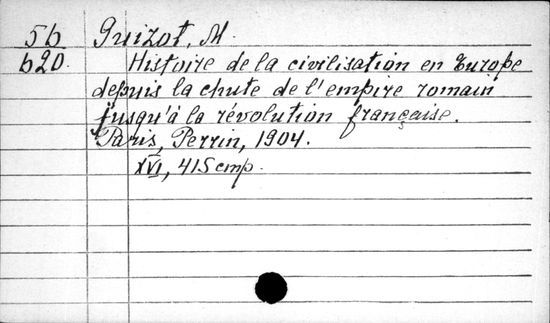 56 Guizot, M
620. Histoire de la civilisation en Europe
depuis la chute de l'empire romain
jusqu'à la révolution française.
Paris, Perrin, 1904.
XVI, 415 стр.